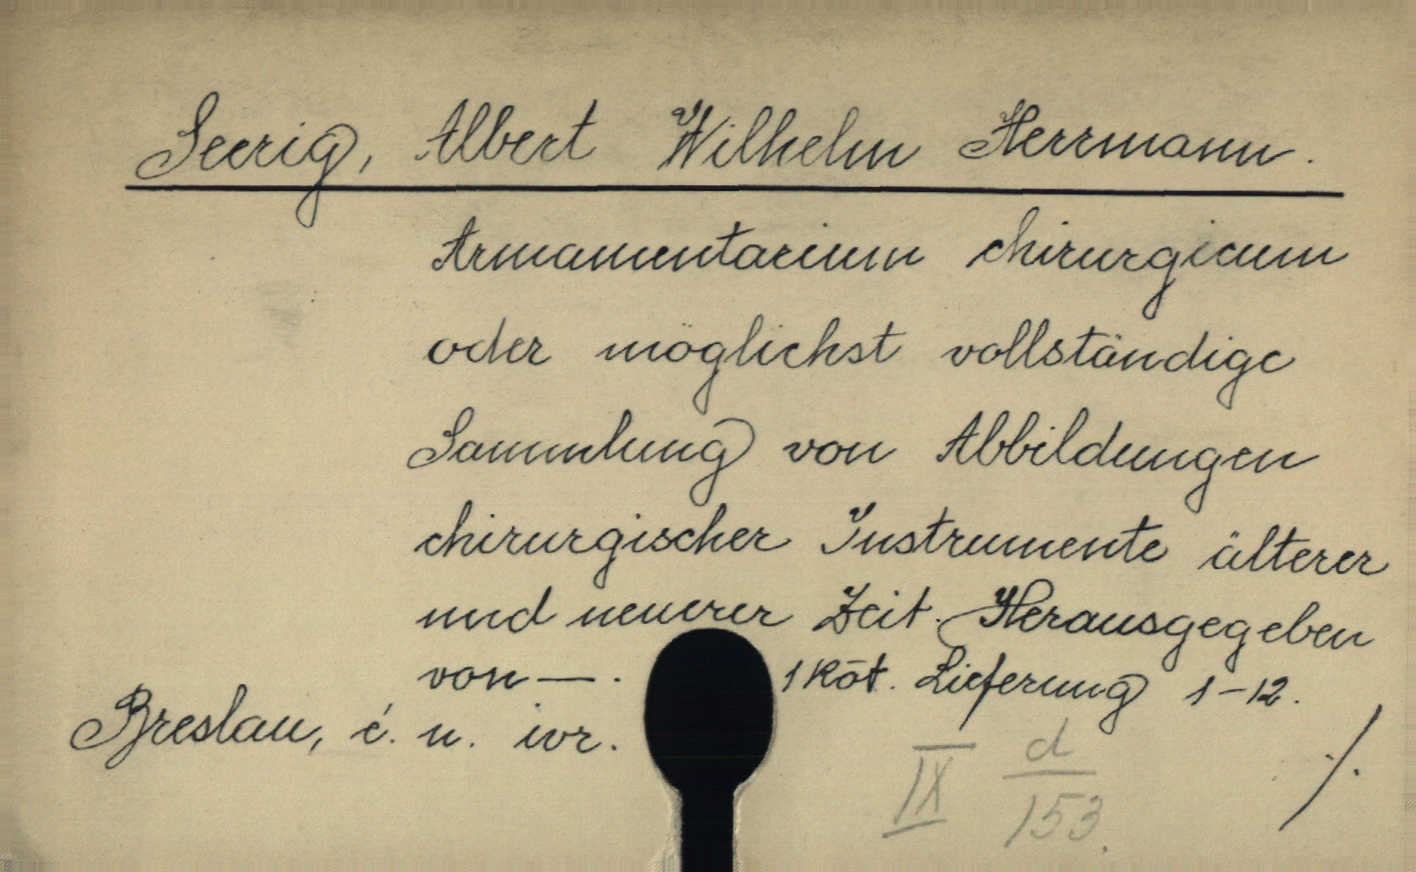 Seerig, Albert Wilhelm Herrmann.
Armamentarium chirurgicum
oder möglichst vollständige
Sammlung von Abbildungen
chirurgischer Instrumente älterer
und neuerer Zeit. Herausgegeben
von —. 1 Köt. Lieferung 1-12.
Breslau, é. n. ivr.
IX d/153.
./.